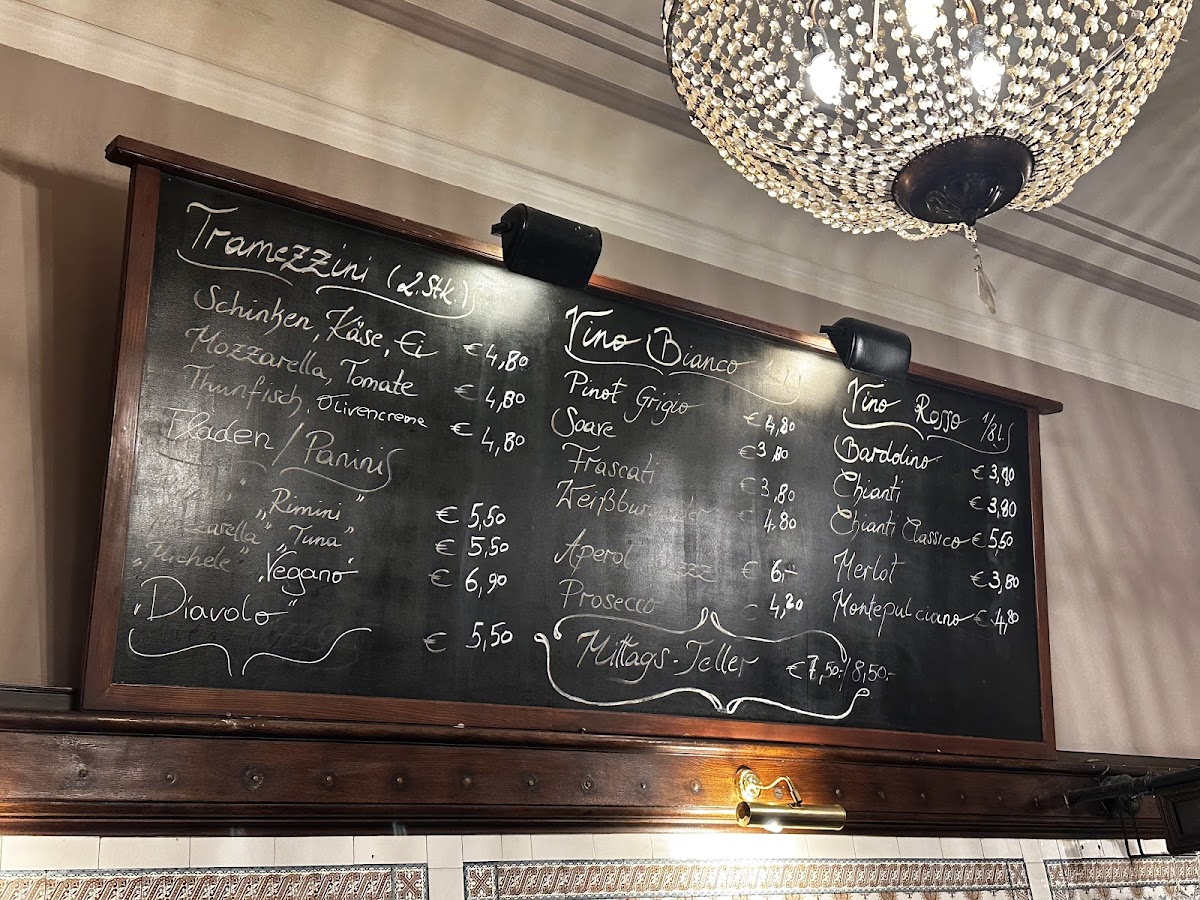 Tramezzini (2.Stk.)
Schinken, Käse, Ei € 4,80
Mozzarella, Tomate € 4,80
Thunfisch, Olivencreme € 4,80
Fladen / Paninis
„Rimini" € 5,50
„Tuna" € 5,50
„Vegano" € 6,90
„Diavolo" € 5,50
Vino Bianco
Pinot Grigio € 4,80
Soave € 3,80
Frascati € 3,80
4,80
Aperol € 6,-
Prosecco 4,20
Mittags-Teller € 7,50,-/8,50,-
Vino Rosso 1/8 l.
Bardolino € 3,90
Chianti € 3,80
Chianti Classico € 5,50
Merlot € 3,80
Montepulciano € 4,80